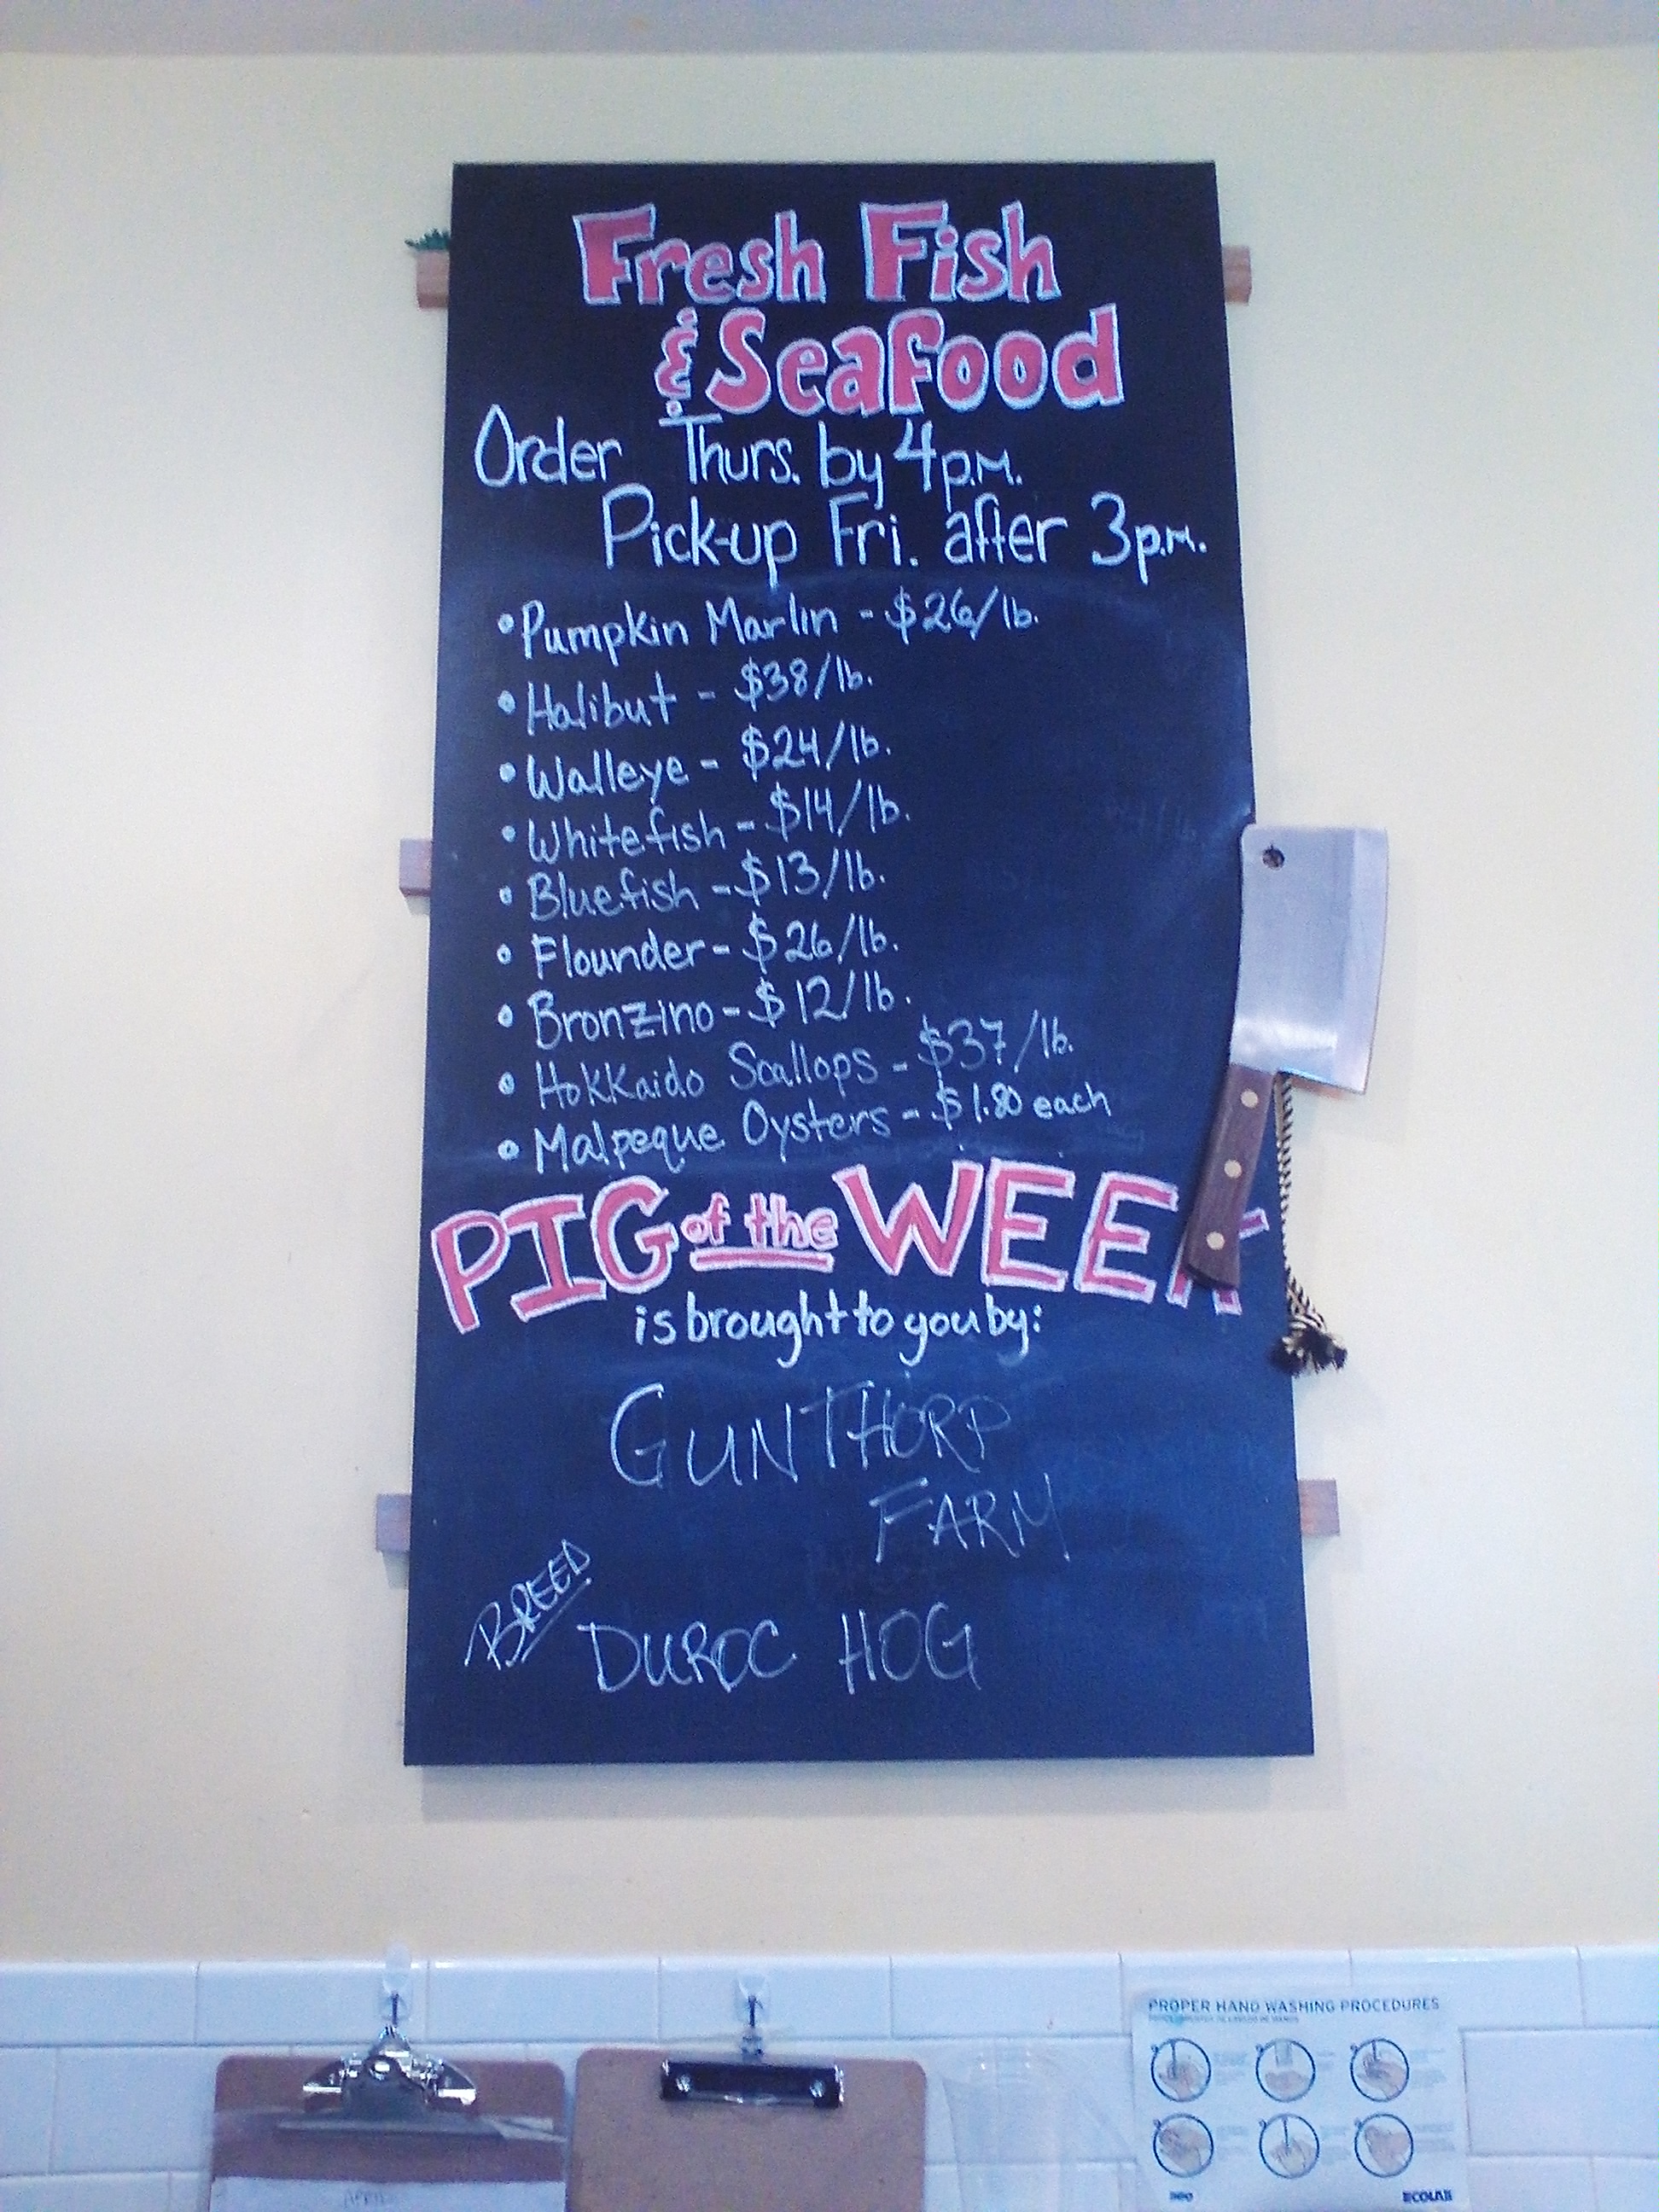 Fresh Fish
& Seafood
Order Thurs. by 4p.m.
Pick-up Fri. after 3p.m.
• Pumpkin Marlin - $26/lb.
• Halibut - $38/lb.
• Walleye - $24/lb.
• Whitefish - $14/lb.
• Bluefish - $13/lb.
• Flounder - $26/lb.
• Bronzino - $12/lb.
• Hokkaido Scallops - $37/lb.
• Malpeque Oysters - $1.80 each
PIG of the WEEK
is brought to you by:
GUNTHORP
FARM
BREED
DUROC HOG
PROPER HAND WASHING PROCEDURES
ECOLAB
APRIL